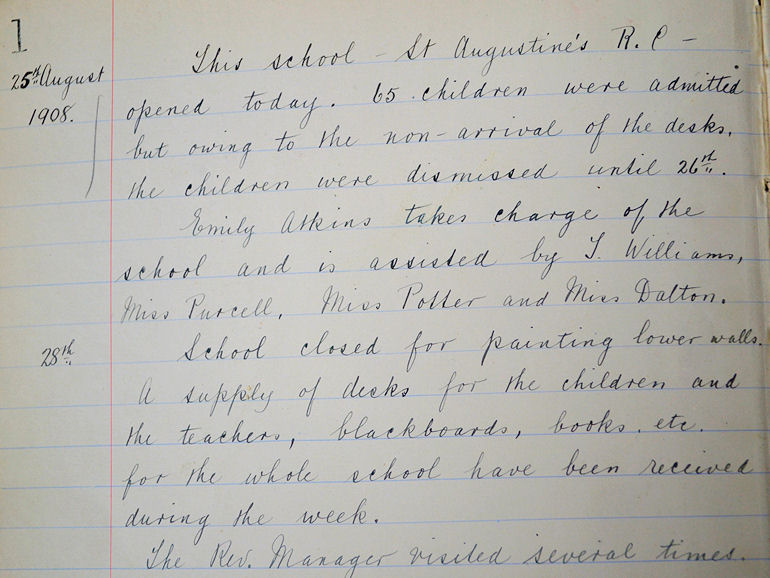 1
This school - St Augustine's R. C -
25th August
1908.
opened today. 65 children were admitted
but owing to the non-arrival of the desks,
the children were dismissed until 26th.
Emily Atkins takes charge of the
school and is assisted by T. Williams,
Miss Purcell, Miss Potter and Miss Dalton.
28th School closed for painting lower walls.
A supply of desks for the children and
the teachers, blackboards, books. etc.
for the whole school have been received
during the week.
The Rev. Manager visited several times.